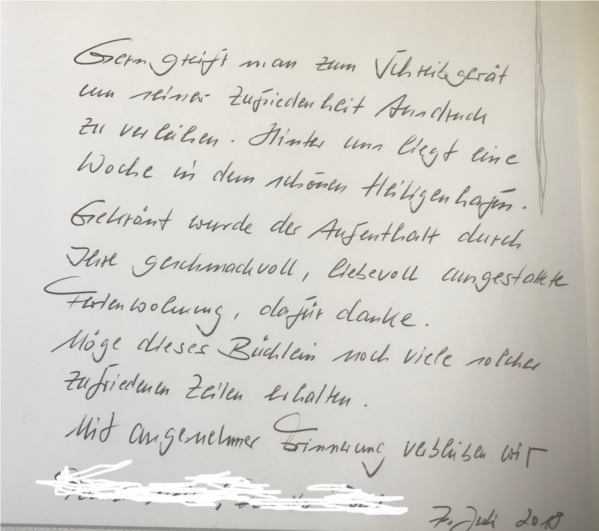 Gern greift man zum Schreibgerät
um seiner Zufriedenheit Ausdruck
zu verleihen. Hinter uns liegt eine
Woche in dem schönen Heiligenhafen.
Gekrönt wurde der Aufenthalt durch
Ihre geschmackvoll, liebevoll ausgestattete
Ferienwohnung, dafür danke.
Möge dieses Büchlein noch viele solcher
zufriedenen Zeilen erhalten.
Mit angenehmer Erinnerung verbleiben wir
Juli 2018